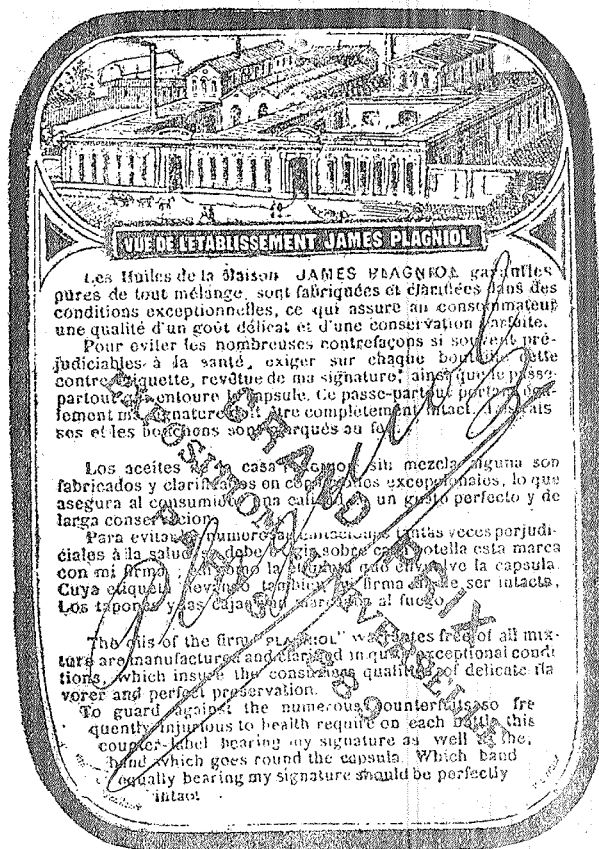 VUE DE L'ETABLISSEMENT JAMES PLAGNIOL
Les Huiles de la Maison JAMES PLAGNIOL garanties
pures de tout mélange, sont fabriquées et clarifiées dans des
conditions exceptionnelles, ce qui assure au consommateur
une qualité d'un goût délicat et d'une conservation parfaite.
Pour eviter les nombreuses contrefaçons si souvent pré-
judiciables à la santé, exiger sur chaque bouteille cette
contre-étiquette, revêtue de ma signature, ainsi que le passe-
partout qui entoure la capsule. Ce passe-partout portant éga-
lement ma signature doit être complètement intact. Les cais
ses et les bouchons sont marqués au feu.
Los aceites de la casa PLAGNIOL sin mezcla alguna son
fabricados y clarificados en condiciones excepcionales, lo que
asegura al consumidor una calidad de un gusto perfecto y de
larga conservacion
Para evitar numerosas tantas veces perjudi-
ciales à la salud, se debe sobre cada botella esta marca
con mi firma como la que envuelve la capsula.
Cuya etiqueta llevando tambien mi firma de ser intacta.
Los tapones y las cajas son marcados al fuego
The oils of the firm PLAGNIOL" warrantes free of all mix-
ture are manufactured and clarified in quite exceptional condi
tions, which insure the consumers qualities of delicate fla
vorer and perfect preservation.
To guard against the numerous Counterfeits so fre
quently injurious to health require on each bottle this
counter-label bearing my signature as well as the
band which goes round the capsula. Which band
equally bearing my signature should be perfectly
intact
GRAND PRIX
EXPOSITION UNIVERSELLE
PARIS